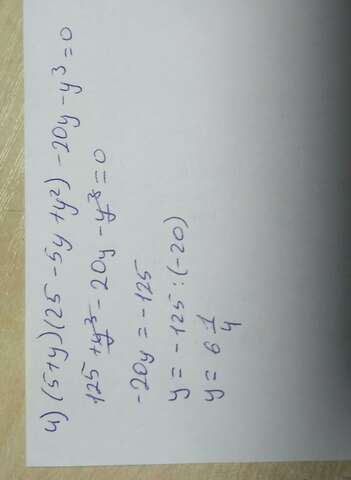 4) (5+y)(25-5y+y²)-20y-y³=0
125+y³-20y-y³=0
-20y=-125
y=-125:(-20)
y=6 1/4